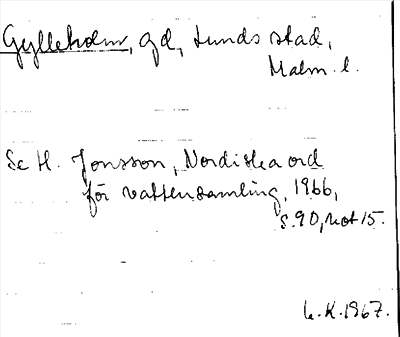 Gylleholm, gd, Lunds stad,
Malm. l.
Se H. Jonsson, Nordiska ord
för vattensamling, 1966,
s. 90, not 15.
L. K. 1967.